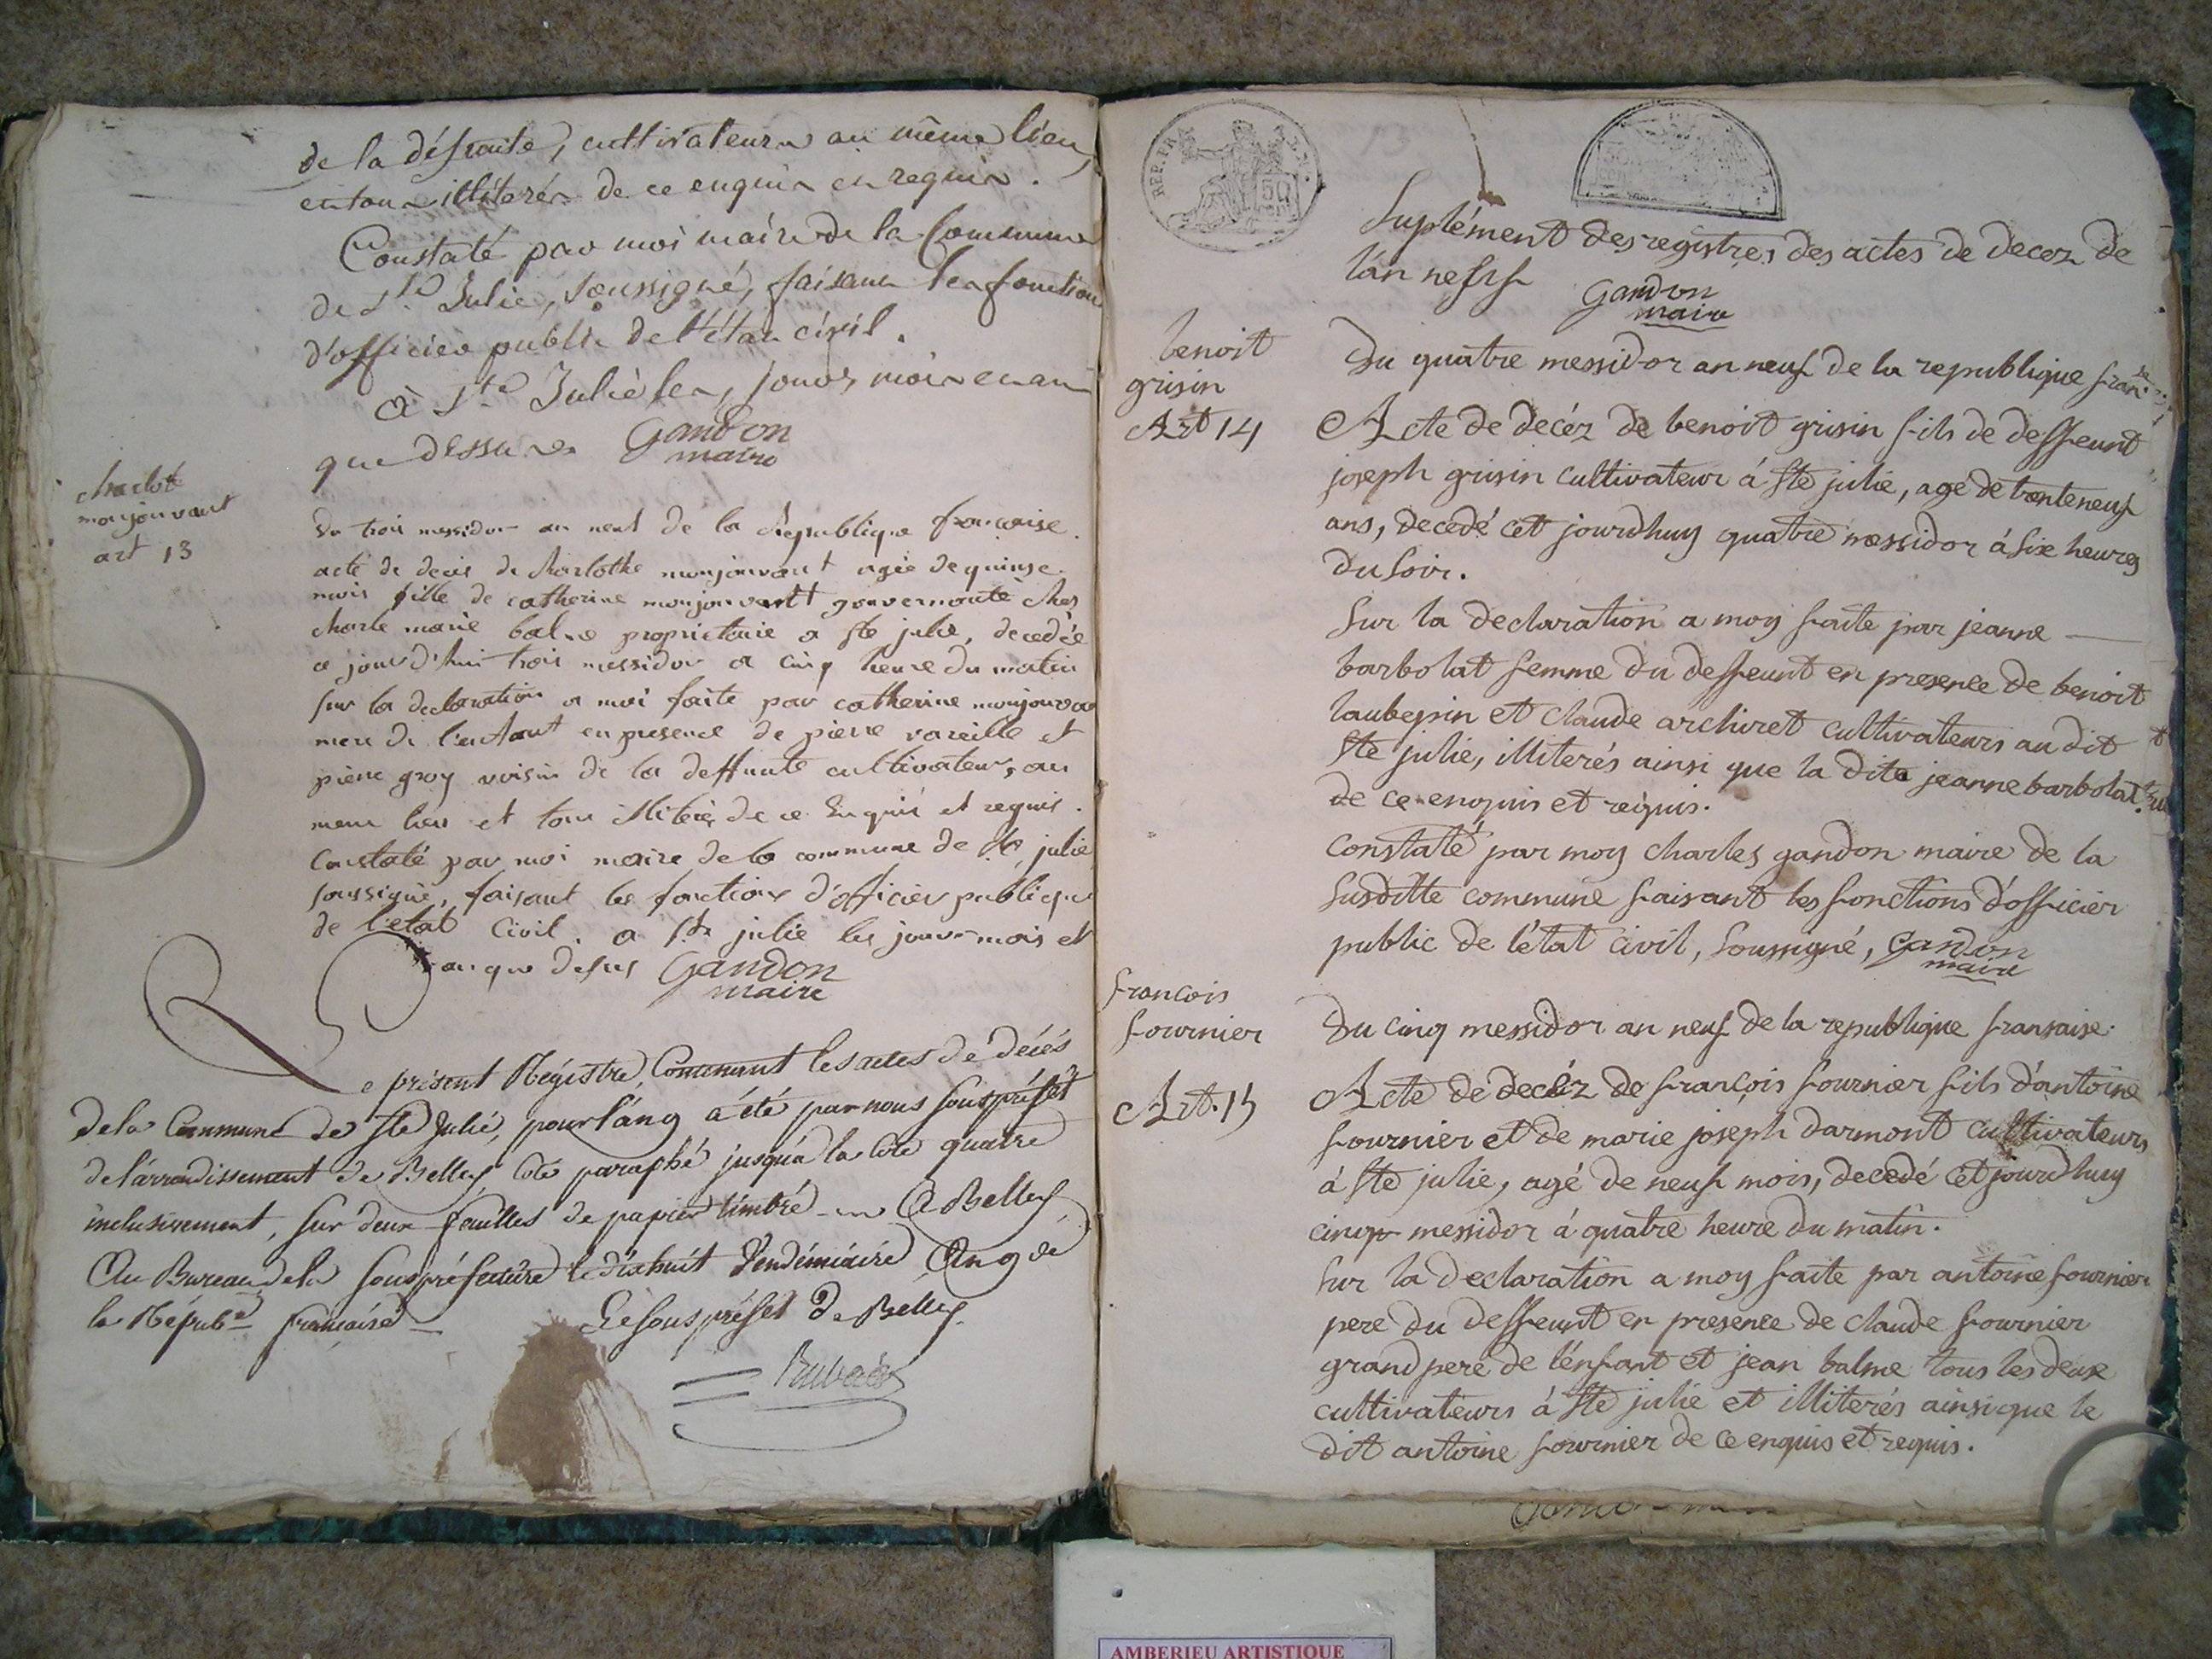 de la défunte, cultivateurs au même lieu,
et tous illiterés de ce enquis et requis.
Constaté par moi maire de la Commune
de Ste Julie, soussigné, faisant les fonctions
d'officier public de l'état civil.
à Ste Julie les, jours, mois et an
que dessus. Gandon
maire
charlote
monjouvant
art 13
du trois messidor an neuf de la Republique francaise.
acte de deces de charlothe monjouvant agée de quinse
mois fille de catherine monjouvant gouvernante ches
charle marie balme proprietaire a ste julie, decedée
ce jourd'hui trois messidor a cinq heure du matin
sur la declaration a moi faite par catherine monjouvan
mere de l'enfant en presence de pierre vareille et
pierre groy voisin de la deffunte cultivateurs au
meme lieu et tous illiteres de ce Enquis et requis.
Constaté par moi maire de la commune de ste julie
soussigné, faisant les fonctions d'officier publique
de l'etat civil. a ste julie les jours mois et
an que desus Gandon
maire
Le présent Régistre, Contenant les actes de décés
de la Commune de Ste Julie, pour l'an 9 a été par nous sous préfet
de l'arrondissement de Belley coté paraphé jusqu'à la cote quatre
inclusivement, sur deux feuilles de papier timbré. A Belley
Au Bureau de la sous préfecture le dixhuit Vendémiaire An 9 de
la Répub. française
Le sous préfet de Belley.
REP. FRA.
50
Suplément des registres des actes de decez de
l'an nefsf
Gandon
maire
benoit
grisin
Art 14
Du quatre messidor an neuf de la republique fran.se
Acte de decéz de benoit grisin fils de deffeunt
joseph grisin cultivateur á Ste julie, age de trenteneuf
ans, decedé cet jourdhuy quatre messidor á six heures
du soir.
Sur la declaration a moy faite par jeanne
barbolat femme du deffeunt en presence de benoit
laubepin et claude archiret cultivateurs au dit
Ste julie, illiterés ainsi que la dite jeanne barbolat
de ce enquis et requis.
constaté par moy charles gandon maire de la
susditte commune faisant les fonctions d'officier
public de l'état civil, soussigné, Gandon
maire
francois
fournier
Art. 15
Du cinq messidor an neuf de la republique fransaise.
Acte de decéz de françois fournier fils d'antoine
fournier et de marie joseph darmont cultivateurs
á Ste julie, agé de neuf mois, decedé cet jourdhuy
cinq messidor á quatre heure du matin.
Sur la declaration a moy faite par antoine fournier
pere du deffeunt en presence de claude fournier
grand pere de l'enfant et jean balme tous les deux
cultivateurs á Ste julie et illiterés ainsi que le
dit antoine fournier de ce enquis et requis.
AMBERIEU ARTISTIQUE